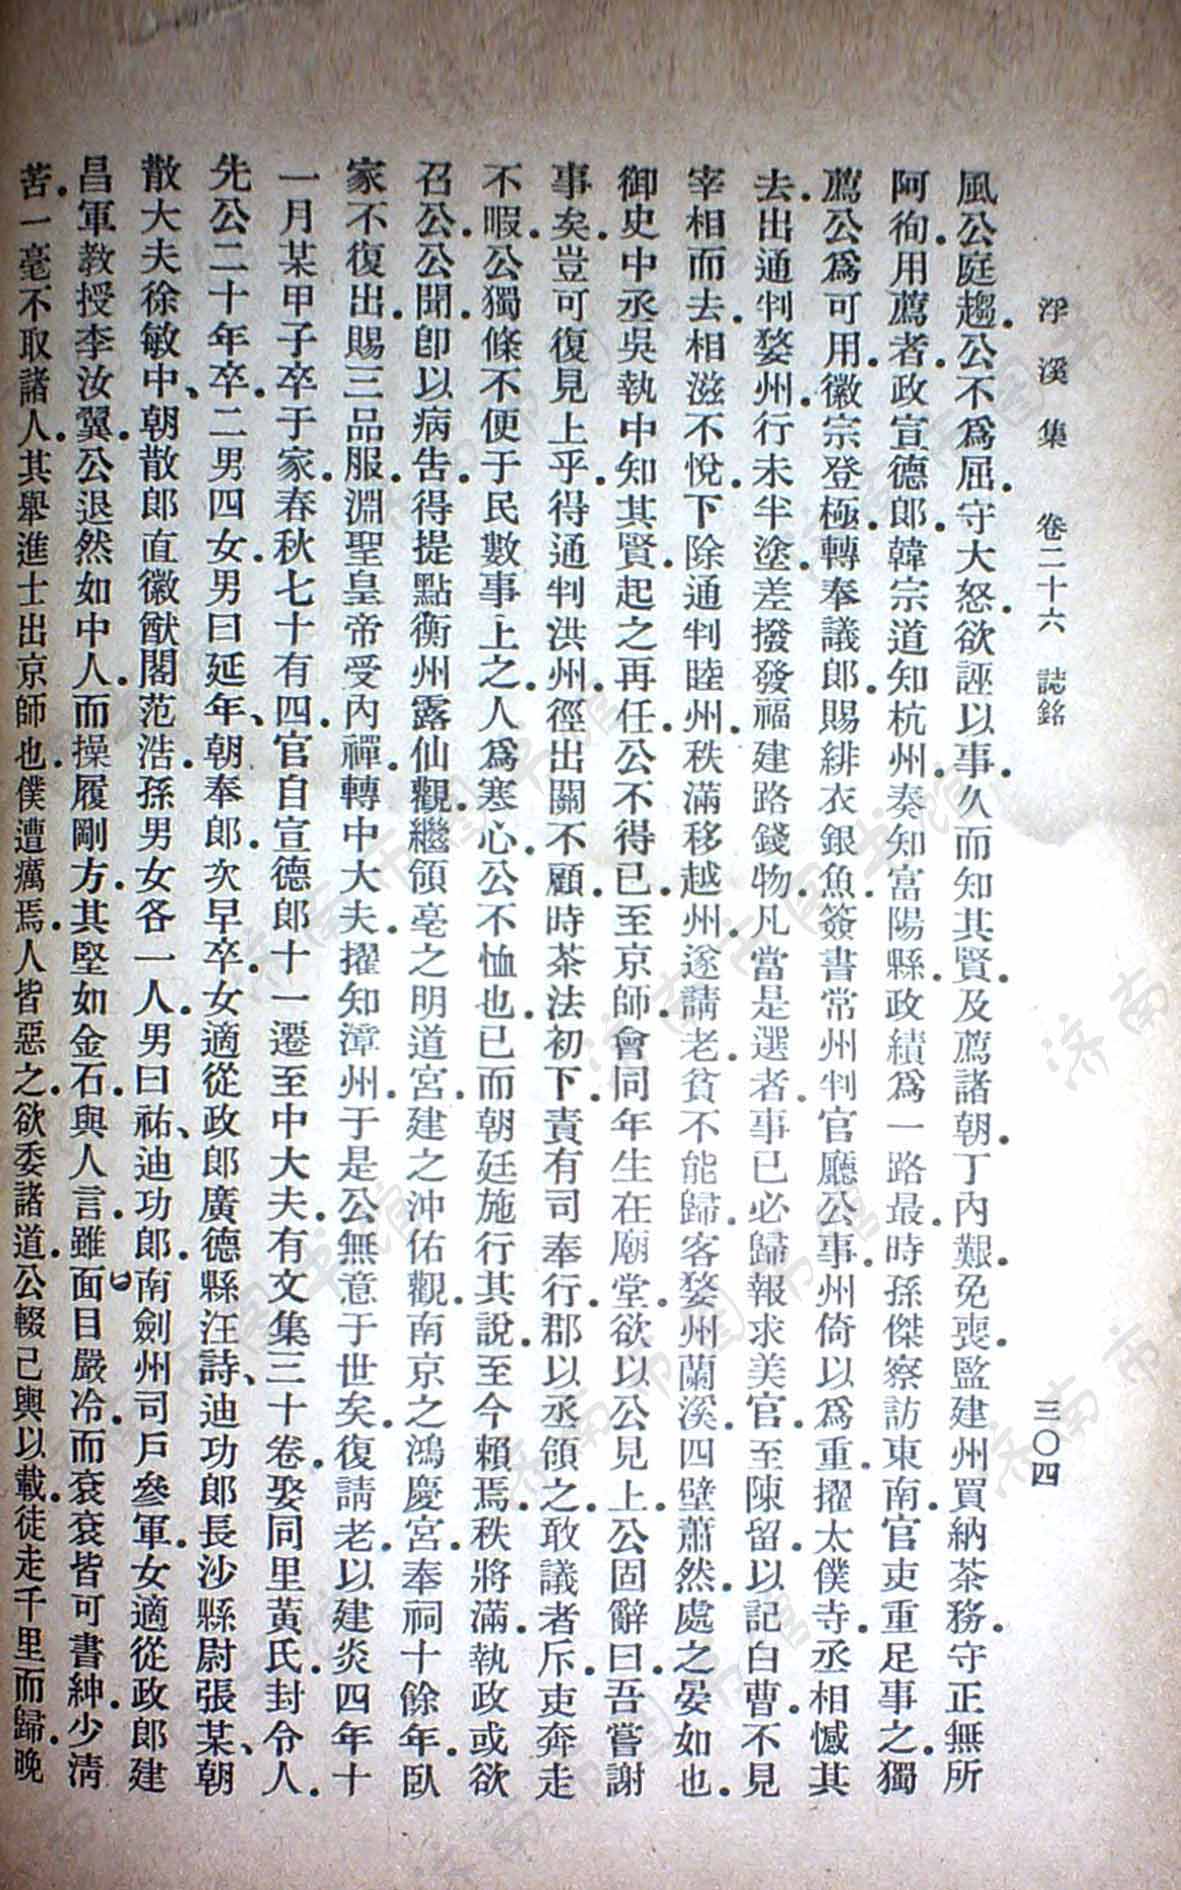 浮溪集 卷二十六 誌銘 三〇四
風公庭趨。公不爲屈。守大怒。欲誣以事。久而知其賢。及薦諸朝。丁內艱。免喪。監建州買納茶務。守正無所
阿徇。用薦者。政宣德郎。韓宗道知杭州。奏知富陽縣。政績爲一路最。時孫傑察訪東南。官吏重足事之。獨
薦公爲可用。徽宗登極。轉奉議郎。賜緋衣銀魚。簽書常州判官廳公事。州倚以爲重。擢太僕寺丞。相憾其
去。出通判婺州。行未半塗。差撥發福建路錢物。凡當是選者。事已必歸報求美官。至陳留。以記白曹。不見
宰相而去。相滋不悅。下除通判睦州。秩滿移越州。遂請老。貧不能歸。客婺州蘭溪。四壁蕭然。處之晏如也。
御史中丞吳執中知其賢。起之再任。公不得已至京師。會同年生在廟堂。欲以公見上。公固辭曰。吾嘗謝
事矣。豈可復見上乎。得通判洪州。徑出關不顧。時茶法初下。責有司奉行。郡以丞領之。敢議者斥。吏奔走
不暇。公獨條不便于民數事上之。人爲寒心。公不恤也。已而朝廷施行其說。至今賴焉。秩將滿。執政或欲
召公。公聞。卽以病告。得提點衡州露仙觀。繼領亳之明道宮。建之沖佑觀。南京之鴻慶宮。奉祠十餘年。臥
家不復出。賜三品服。淵聖皇帝受內禪。轉中大夫。擢知漳州。于是公無意于世矣。復請老。以建炎四年十
一月某甲子卒于家。春秋七十有四。官自宣德郎十一遷至中大夫。有文集三十卷。娶同里黃氏。封令人。
先公二十年卒。二男四女。男曰延年、朝奉郎。次早卒。女適從政郎廣德縣汪詩、迪功郎長沙縣尉張某、朝
散大夫徐敏中、朝散郎直徽猷閣范浩。孫男女各一人。男曰祐、迪功郎。南劍州司戶參軍。女適從政郎建
昌軍教授李汝翼。公退然如中人。而操履剛方。其堅如金石。與人言。雖面目嚴冷。而袞袞皆可書紳。少淸
苦。一毫不取諸人。其舉進士出京師也。僕遭癘焉。人皆惡之。欲委諸道。公輟已輿以載。徒走千里而歸。晚